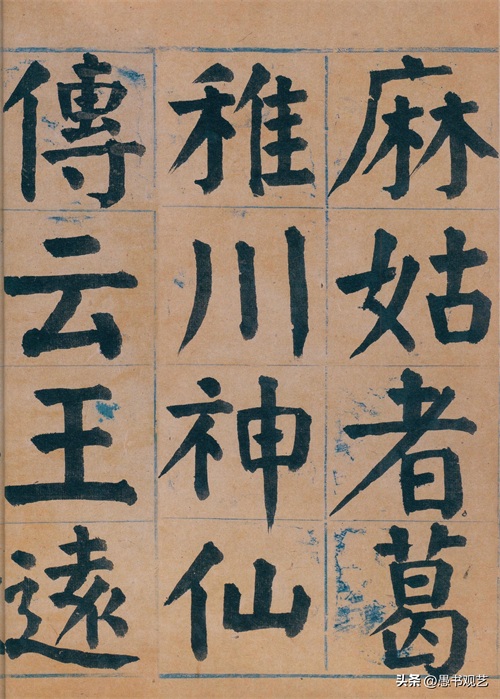 麻姑者葛
稚川神仙
傳云王遠
头条 @愚书观艺